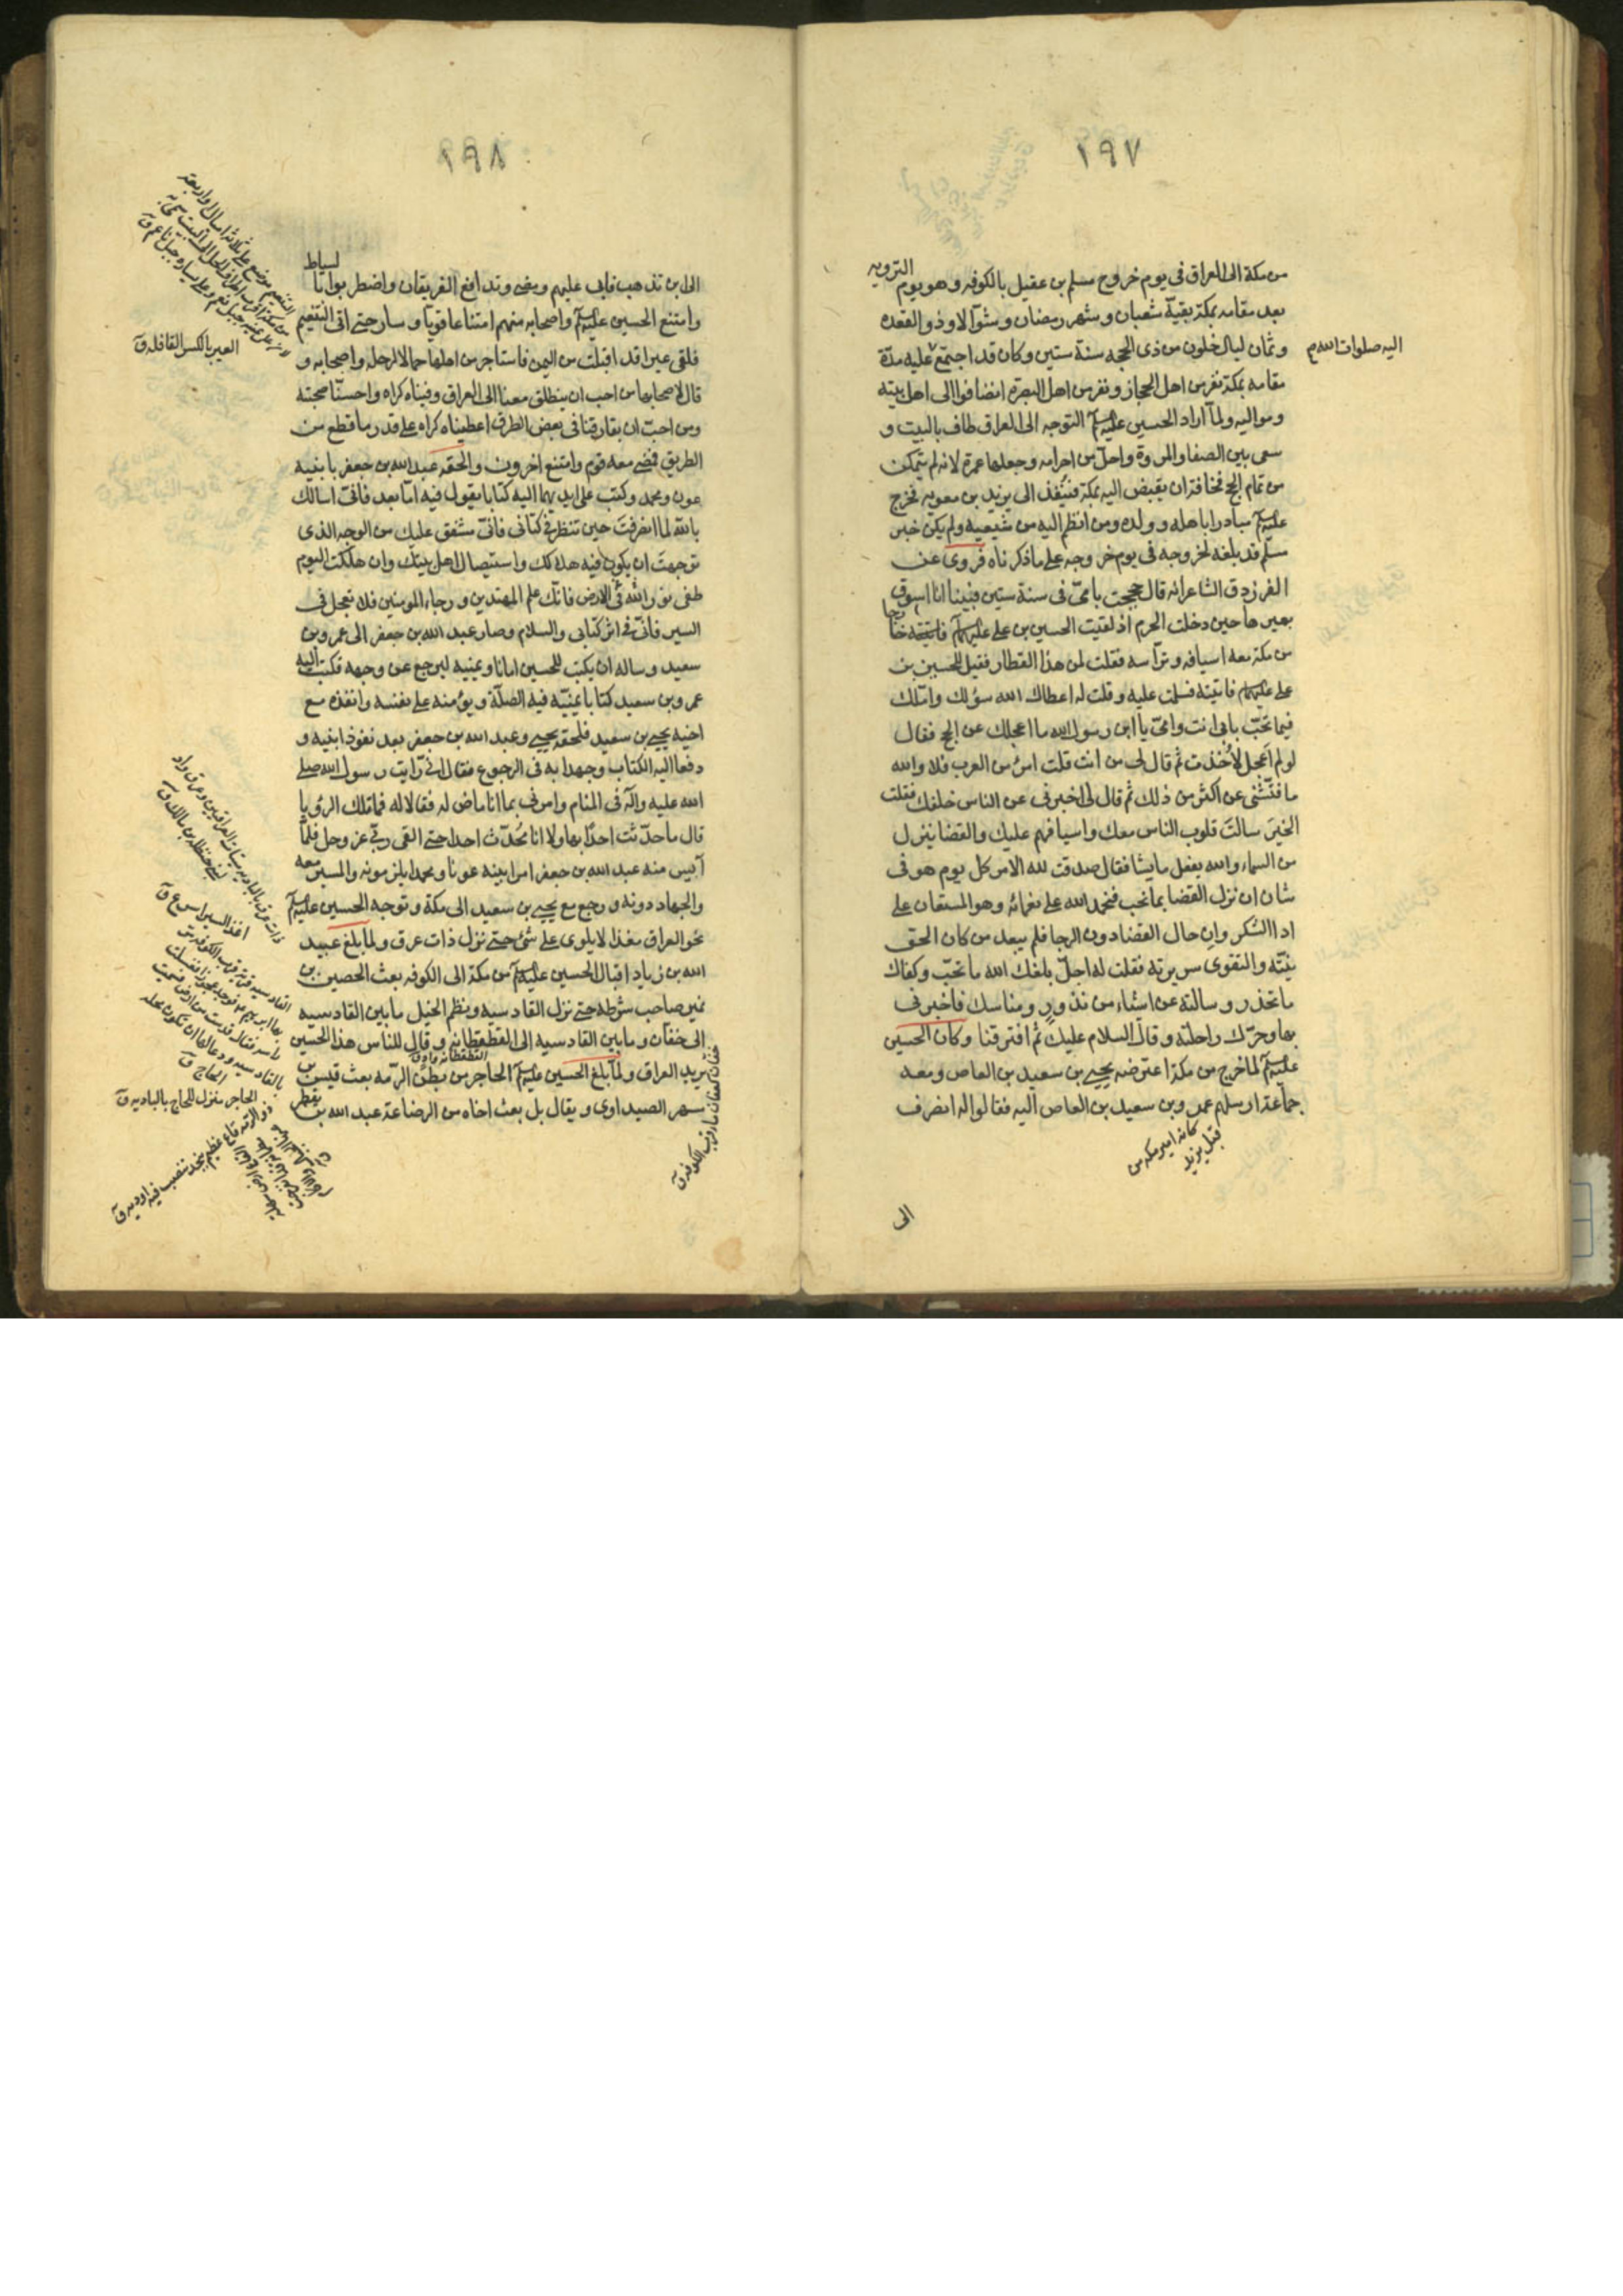 ١٩٧
من مكة الى العراق فى يوم خروج مسلم بن عقيل بالكوفه وهو يوم الترويه
بعد مقامه بمكة بقيّة شعبان وشهر رمضان وشوّالا وذو القعده
وثمان ليال خلون من ذى الحجه سنة ستين وكان قد اجتمع عليه مدّة
اليه صلوات الله م
مقامه بمكة نفر من اهل الحجاز ونفر من اهل البصرة انضافوا الى اهل بيته
ومواليه ولمّا اراد الحسين عليه السلام التوجه الى العراق طاف بالبيت و
سعى بين الصفا والمروة واحلّ من احرامه وجعلها عمرة لانه لم يتمكن
من تمام الحج مخافة ان يقبض اليه بمكة فينفذ الى يزيد بن معويه فخرج
عليه السلام مبادرا باهله وولده ومن انظم اليه من شيعيه ولم يكن خبر
مسلم قد بلغه لخروجه فى يوم خروجه على ما ذكرناه فروى عن
الفرزدق الشاعر انه قال حججت بامّى فى سنة ستين فبينا انا اسوق
بعيرها حين دخلت الحرم اذ لقيت الحسين بن على عليهما السلام خارجا
من مكة معه اسيافه وتراسه فقلت لمن هذا القطار فقيل للحسين بن
على عليهما السلام فاتيته فسلمت عليه وقلت له اعطاك الله سؤلك واملك
فيما تحبّ بابى انت وامّى يا ابن رسول الله ما اعجلك عن الحج فقال
لو لم اَعجل لاُخذت ثم قال لى من انت قلت امرؤ من العرب فلا والله
ما فتّشنى عن اكثر من ذلك ثم قال لى اخبرنى عن الناس خلفك فقلت
الخبيرَ سالتَ قلوب الناس معك واسيافهم عليك والقضا ينزل
من السماء والله يفعل ما يشا فقال صدقت لله الامر كل يوم هو فى
شان ان نزل القضا بما نحب فنحمد الله على نعمائه وهو المستعان على
ادا الشكر وان حال القضا دون الرجا فلم يبعد من كان الحق
نيّته والتقوى سريرته فقلت له اجلّ بلغك الله ما تحبّ وكفاك
ما تحذر وسالته عن اشياء من نذورٍ ومناسك فاخبرنى
بها وحرّك راحلته وقال السلام عليك ثم افترقنا وكان الحسين
عليه السلام لما خرج من مكة اعترضه يحيى بن سعيد بن العاص ومعه
جماعة ارسلهم عمرو بن سعيد بن العاص اليه فقالوا له انصرف
كان امير مكه من
قبل يزيد
الى
١٩٨
الى اين تذهب فابى عليهم ومضى وتدافع الفريقان واضطربوا بالسياط
وامتنع الحسين عليه السلام واصحابه منهم امتناعا قويّا وسار حتى اتى التنعيم
فلقى عيرا قد اقبلت من اليمن فاستاجر من اهلها جمالا لرحله واصحابه و
العير بالكسر القافله ق
قال لاصحابها من احب ان ينطلق معنا الى العراق وفيناه كراه واحسنّا صحبته
ومن احبّ ان يفارقنا فى بعض الطرق اعطيناه كراه على قدر ما قطع من
الطريق فمضى معه قوم وامتنع اخرون والحقه عبد الله بن جعفر بابنيه
عون ومحمد وكتب على ايديهما اليه كتابا يقول فيه امّا بعد فانّى اسالك
بالله لما انصرفتَ حين تنظر فى كتابى فانّى مشفق عليك من الوجه الذى
توجهتَ ان يكون فيه هلاكك واستيصال اهل بيتك وان هلكت اليوم
طفى نور الله فى الارض فانّك علم المهتدين ورجاء المومنين فلا تعجل فى
السير فانّى فى اثر كتابى والسلام وصار عبد الله بن جعفر الى عمرو بن
سعيد وساله ان يكتب للحسين امانا ويمنيه ليرجع عن وجهه فكتب اليه
عمرو بن سعيد كتابا يمنيّه فيه الصلة ويؤمنه على نفسه وانفذه مع
اخيه يحيى بن سعيد فلحقه يحيى وعبد الله بن جعفر بعد نفوذ ابنيه و
دفعا اليه الكتاب وجهدا به فى الرجوع فقال انى رايت رسول الله صلى
الله عليه واله فى المنام وامرنى بما انا ماض له فقالا له فما تلك الرؤيا
قال ما حدّثت احدًا بها ولا انا مُحدّث احدا حتى القى ربّى عز وجل فلمّا
آيس منه عبد الله بن جعفر امر ابنيه عونا ومحمدا بلزمونه والمسير معه
والجهاد دونه ورجع مع يحيى بن سعيد الى مكة وتوجه الحسين عليه السلام
نحو العراق مغذا لا يلوى على شئ حتى نزل ذات عرق ولما بلغ عبيد
الله بن زياد اقبال الحسين عليه السلام من مكة الى الكوفه بعث الحصين بن
نمير صاحب شرطه حتى نزل القادسيه ونظم الخيل ما بين القادسيه
الى خفان وما بين القادسيه الى القطقطانه وقال للناس هذا الحسين
يريد العراق ولمّا بلغ الحسين عليه السلام الحاجر من بطن الرّمه بعث قيس بن
مسهر الصيداوى ويقال بل بعث اخاه من الرضاعة عبد الله بن يقطر
اغذ السير اسرع ق
الحاجر منزل للحاج بالباديه ق